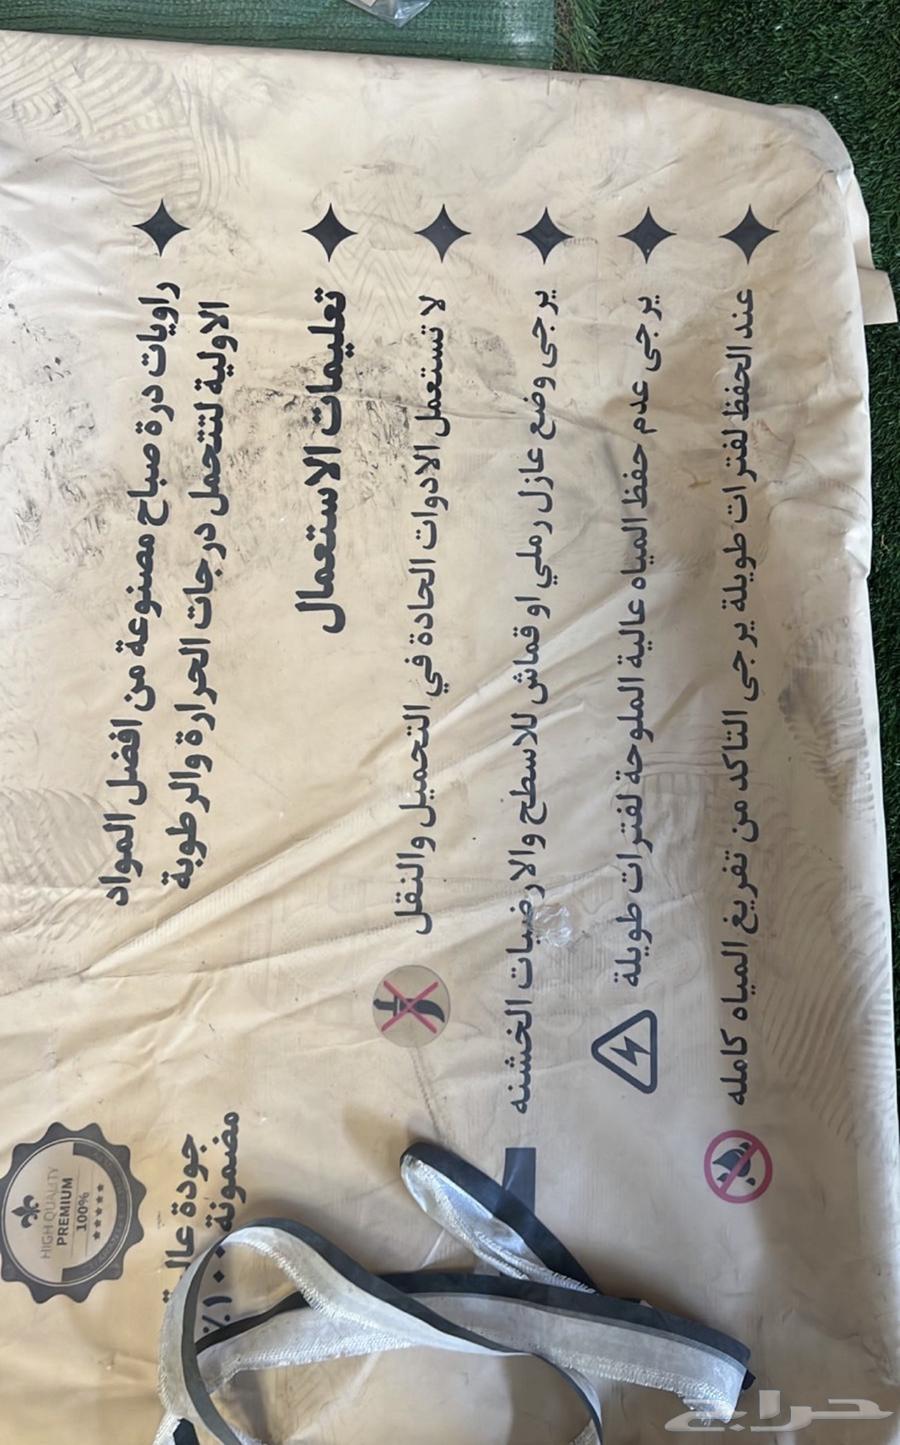 راويات درة صباح مصنوعة من افضل المواد
الاولية لتتحمل درجات الحرارة والرطوبة
تعليمات الاستعمال
لا تستعمل الادوات الحادة في التحميل والنقل
يرجى وضع عازل رملي او قماش للاسطح والارضيات الخشنه
يرجى عدم حفظ المياه عالية الملوحة لفترات طويلة
عند الحفظ لفترات طويلة يرجى التاكد من تفريغ المياه كامله
جودة عالية
مضمونة ١٠٠٪
HIGH QUALITY
PREMIUM
100%
حراج